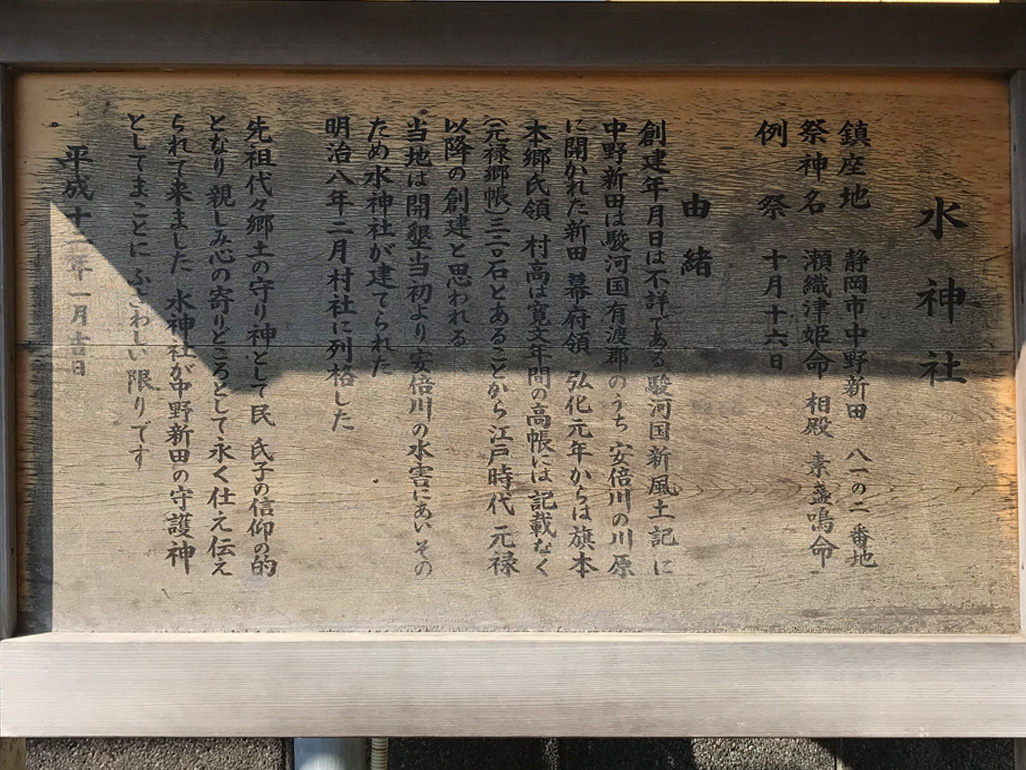 水神社
鎮座地 静岡市中野新田 八一の二番地
祭神名 瀬織津姫命 相殿 素盞鳴命
例祭 十月十六日
由緒
創建年月日は不詳である駿河国新風土記に
中野新田は駿河国有渡郡のうち 安倍川の川原
に開かれた新田 幕府領 弘化元年からは旗本
本郷氏領 村高は寛文年間の高帳には記載なく
(元禄郷帳)三二〇石とあることから江戸時代 元禄
以降の創建と思われる
当地は開墾当初より安倍川の水害にあいその
ため水神社が建てられた
明治八年二月村社に列格した
先祖代々郷土の守り神として民 氏子の信仰の的
となり親しみ心の寄りどころとして永く仕え伝え
られて来ました 水神社が中野新田の守護神
としてまことにふさわしい限りです
平成十二年一月吉日